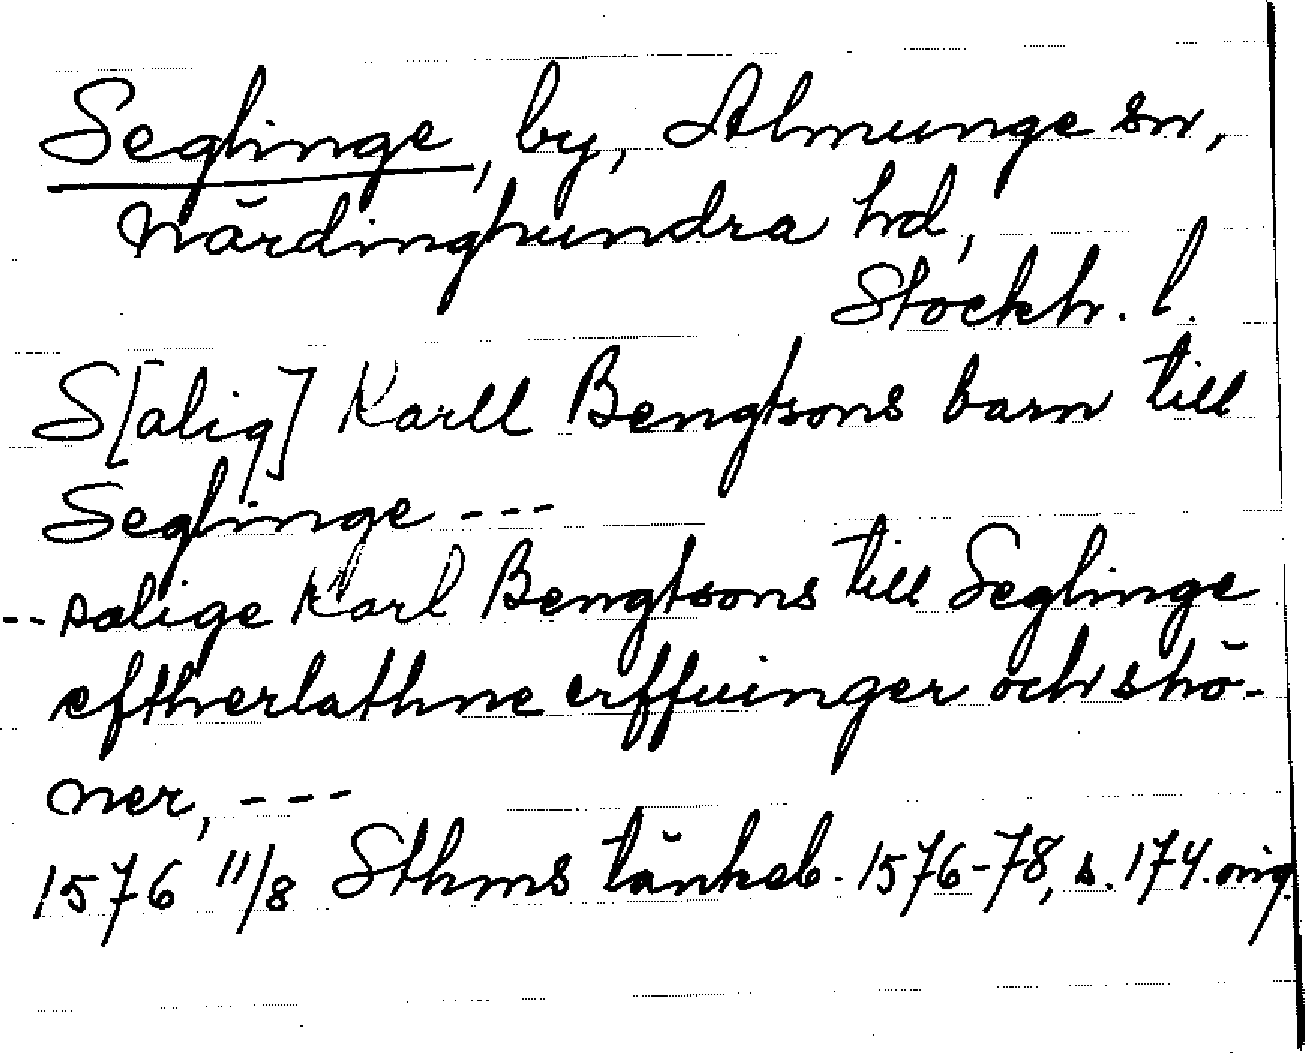 Seglinge, by, Almunge sn,
Närdinghundra hd,
Stockh. l.
S[alig] Karll Bengtsons barn till
Seglinge ---
-- salige Karl Bengtsons till Seglinge
eftherlathne erffuinger och skö-
ner, ---
1576 11/8 Sthms tänkeb. 1576-78, s. 174. orig.